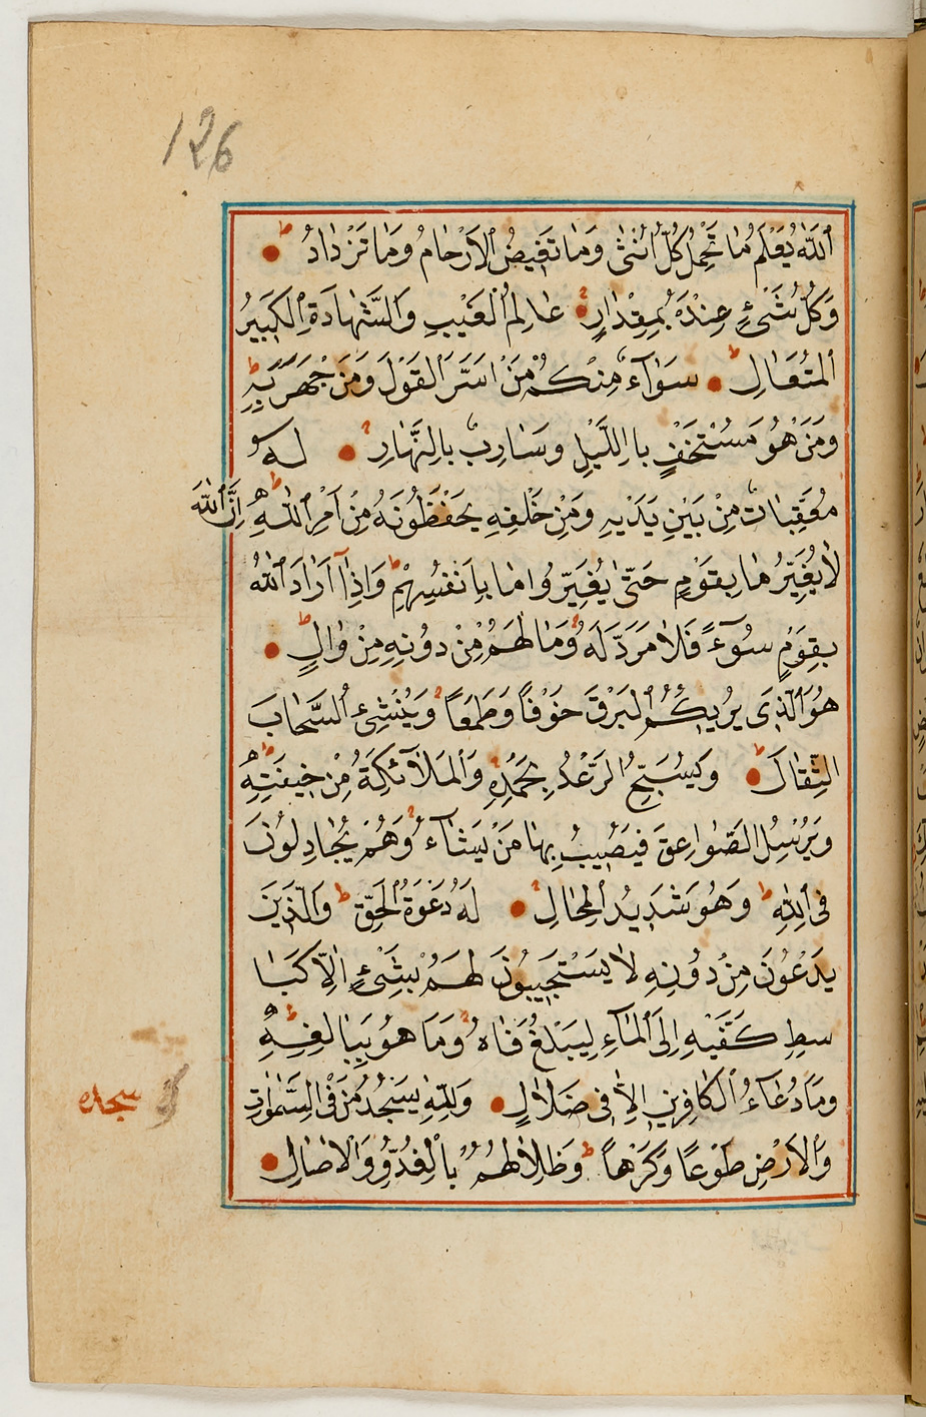 126
اَللّٰهُ يَعْلَمُ مَا تَحْمِلُ كُلُّ اُنْثٰى وَمَا تَغِيضُ الْاَرْحَامُ وَمَا تَزْدَادُ ط
وَكُلُّ شَىْءٍ عِنْدَهُ بِمِقْدَارٍ عَالِمُ الْغَيْبِ وَالشَّهَادَةِ الْكَبِيرُ
الْمُتَعَالِ ط سَوَاۤءٌ مِنْكُمْ مَنْ اَسَرَّ الْقَوْلَ وَمَنْ جَهَرَ بِهِ ط
وَمَنْ هُوَ مُسْتَخْفٍ بِالَّيْلِ وَسَارِبٌ بِالنَّهَارِ لَهُ
مُعَقِّبَاتٌ مِنْ بَيْنِ يَدَيْهِ وَمِنْ خَلْفِهِ يَحْفَظُونَهُ مِنْ اَمْرِ اللّٰهِ ط اِنَّ اللّٰهَ
لَا يُغَيِّرُ مَا بِقَوْمٍ حَتّٰى يُغَيِّرُوا مَا بِاَنْفُسِهِمْ ط وَاِذَاۤ اَرَادَ اللّٰهُ
بِقَوْمٍ سُوۤءً فَلَا مَرَدَّ لَهُ وَمَا لَهُمْ مِنْ دُونِهِ مِنْ وَالٍ ط
هُوَ الَّذِى يُرِيكُمُ الْبَرْقَ خَوْفًا وَطَمَعًا وَيُنْشِئُ السَّحَابَ
الثِّقَالَ ط وَيُسَبِّحُ الرَّعْدُ بِحَمْدِهِ وَالْمَلَاۤئِكَةُ مِنْ خِيفَتِهِ ط
وَيُرْسِلُ الصَّوَاعِقَ فَيُصِيبُ بِهَا مَنْ يَشَاۤءُ وَهُمْ يُجَادِلُونَ
فِى اللّٰهِ ط وَهُوَ شَدِيدُ الْمِحَالِ لَهُ دَعْوَةُ الْحَقِّ ط وَالَّذِينَ
يَدْعُونَ مِنْ دُونِهِ لَا يَسْتَجِيبُونَ لَهُمْ بِشَىْءٍ اِلَّا كَبَا
سِطِ كَفَّيْهِ اِلَى الْمَاۤءِ لِيَبْلُغَ فَاهُ وَمَا هُوَ بِبَالِغِهِ ط
وَمَا دُعَاۤءُ الْكَافِرِينَ اِلَّا فِى ضَلَالٍ وَلِلّٰهِ يَسْجُدُ مَنْ فِى السَّمٰوَاتِ
وَالْاَرْضِ طَوْعًا وَكَرْهًا ط وَظِلَالُهُمْ بِالْغُدُوِّ وَالْاٰصَالِ
سجده